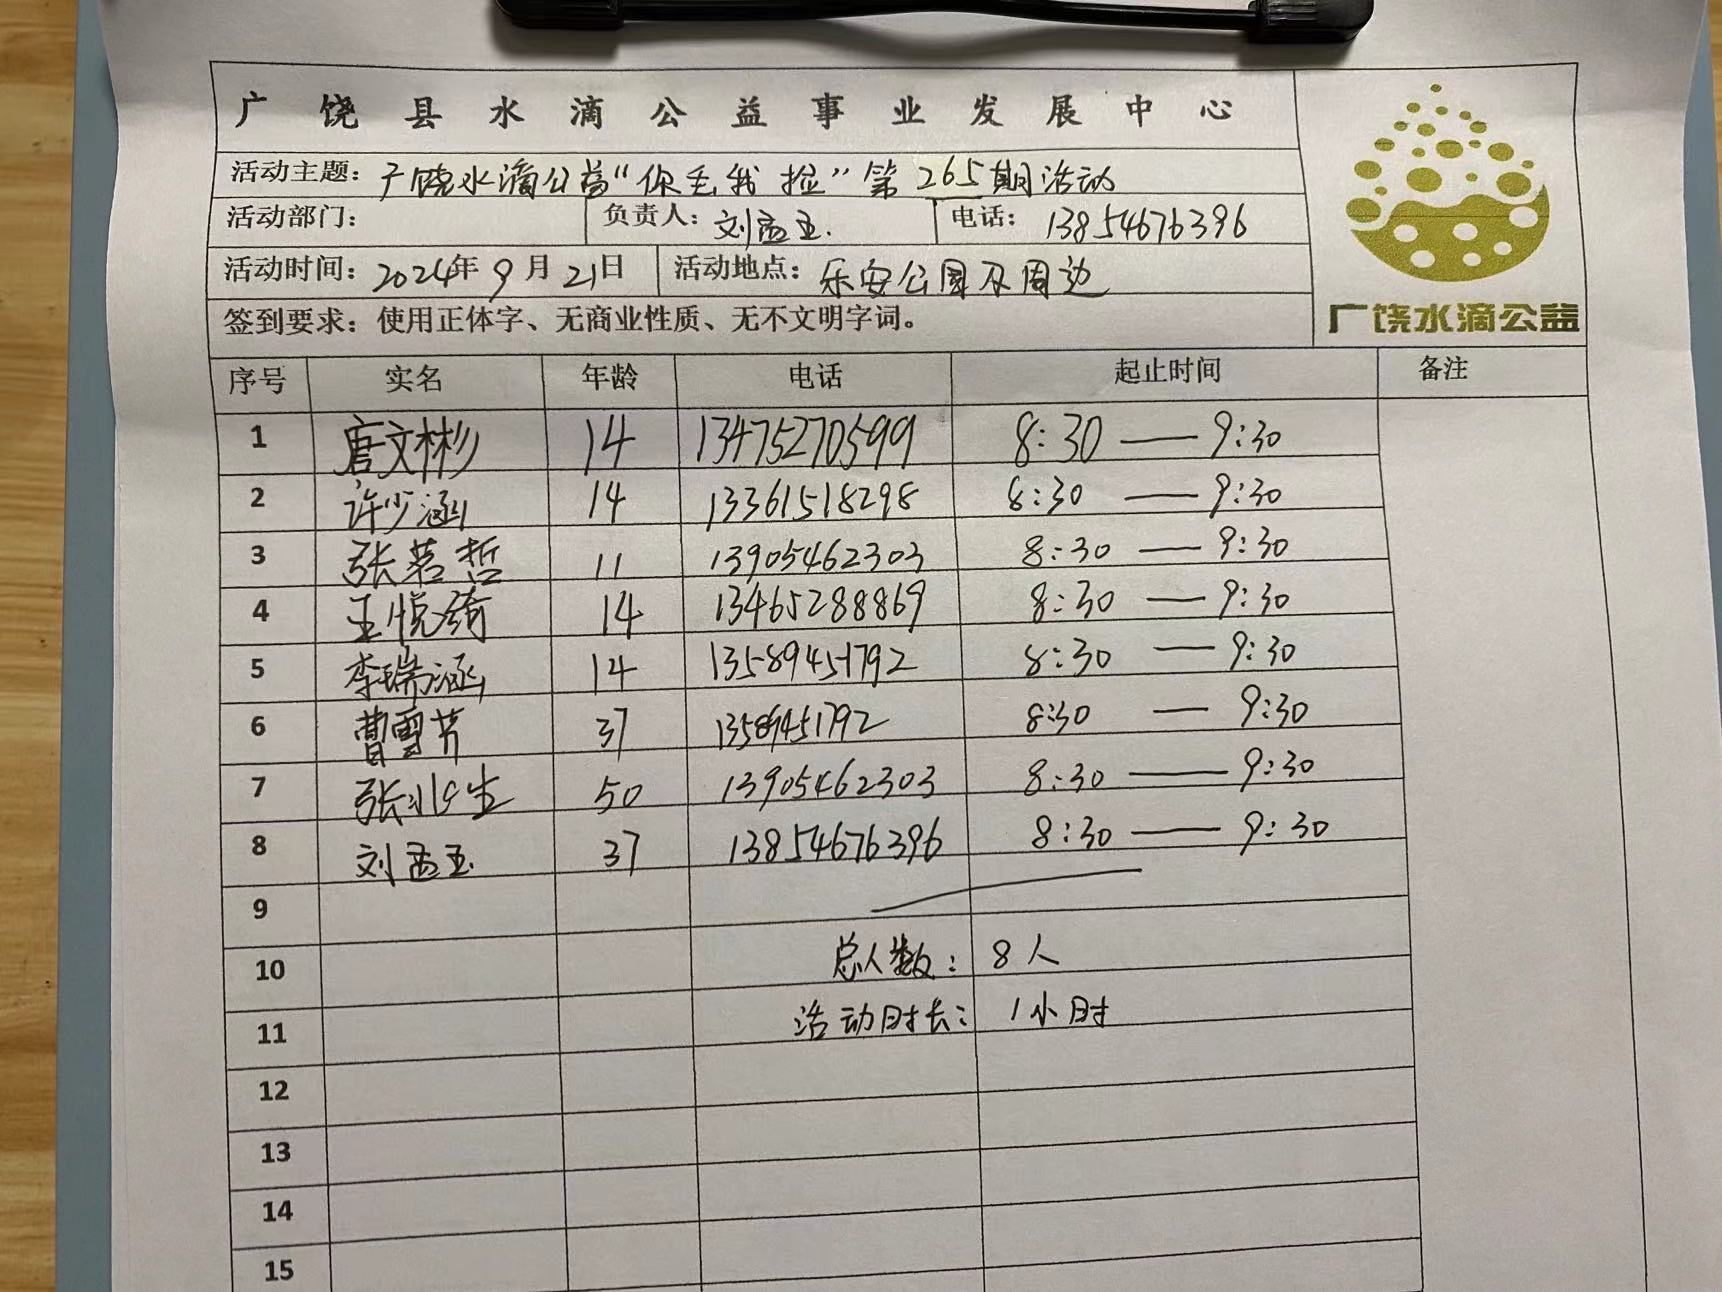 广饶县水滴公益事业发展中心
活动主题：广饶水滴公益“你丢我捡”第265期活动
活动部门： 负责人：刘孟玉 电话：13854676396
活动时间：2024年9月21日 活动地点：乐安公园及周边
签到要求：使用正体字、无商业性质、无不文明字词。
广饶水滴公益
序号 实名 年龄 电话 起止时间 备注
1 唐文彬 14 13475270599 8:30——9:30
2 许少涵 14 13361518298 8:30——9:30
3 张茗哲 11 13905462303 8:30——9:30
4 王悦绮 14 13465288869 8:30——9:30
5 李瑞涵 14 13589451792 8:30——9:30
6 曹雪芹 37 13589451792 8:30——9:30
7 张 生 50 13905462303 8:30——9:30
8 刘孟玉 37 13854676396 8:30——9:30
9
10 总人数：8人
11 活动时长：1小时
12
13
14
15